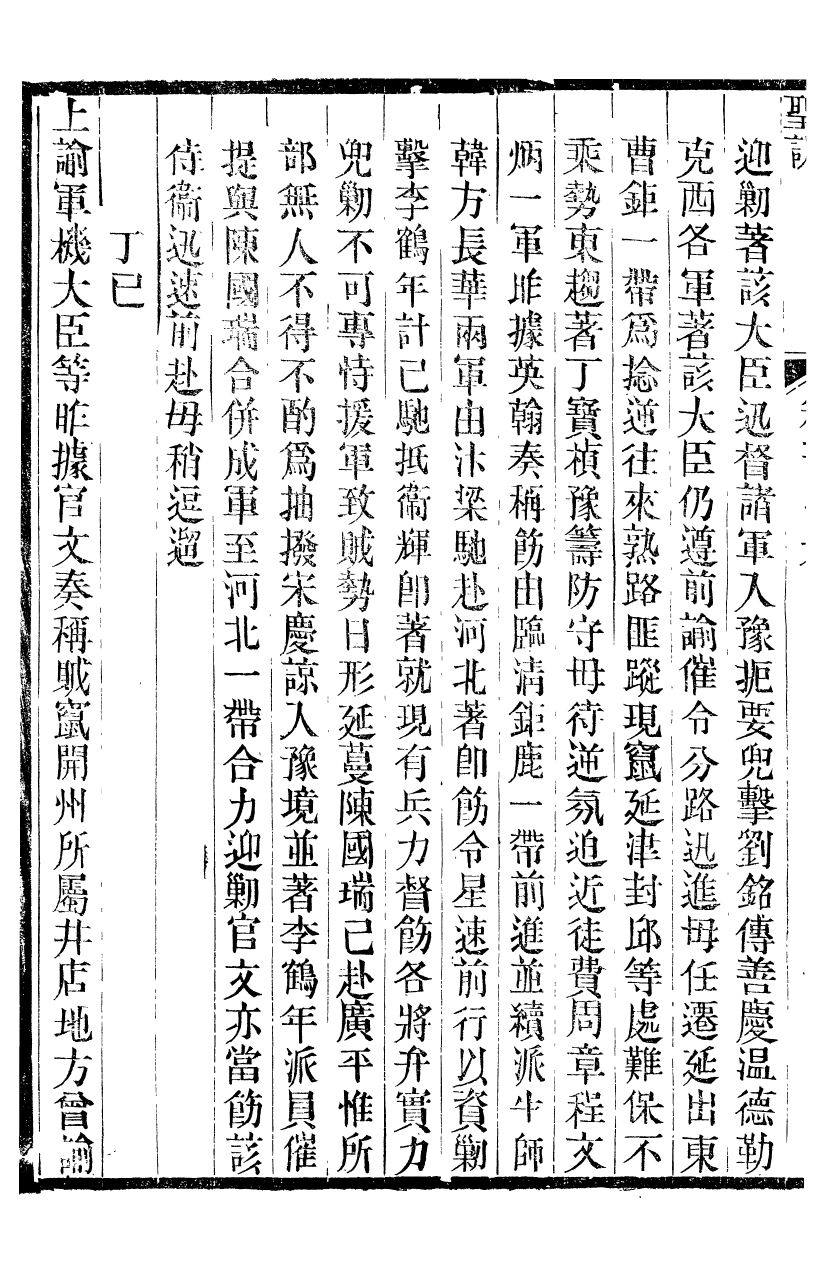 聖訓
迎勦著該大臣迅督諸軍入豫扼要兜擊劉銘傳善慶温德勒
克西各軍著該大臣仍遵前諭催令分路迅進毋任遷延出東
曹鉅一帶爲捻逆往來熟路匪蹤現竄延津封邱等處難保不
乘勢東趨著丁寶楨豫籌防守毋待逆氛迫近徒費周章程文
炳一軍昨據英翰奏稱飭由臨淸鉅鹿一帶前進並續派牛師
韓方長華兩軍由汴梁馳赴河北著卽飭令星速前行以資勦
擊李鶴年計已馳抵衞輝卽著就現有兵力督飭各將弁實力
兜勦不可專恃援軍致賊勢日形延蔓陳國瑞已赴廣平惟所
部無人不得不酌爲抽撥宋慶諒入豫境並著李鶴年派員催
提與陳國瑞合併成軍至河北一帶合力迎勦官文亦當飭該
侍衞迅速前赴毋稍逗遛
丁巳
上諭軍機大臣等昨據官文奏稱賊竄開州所屬井店地方曾諭